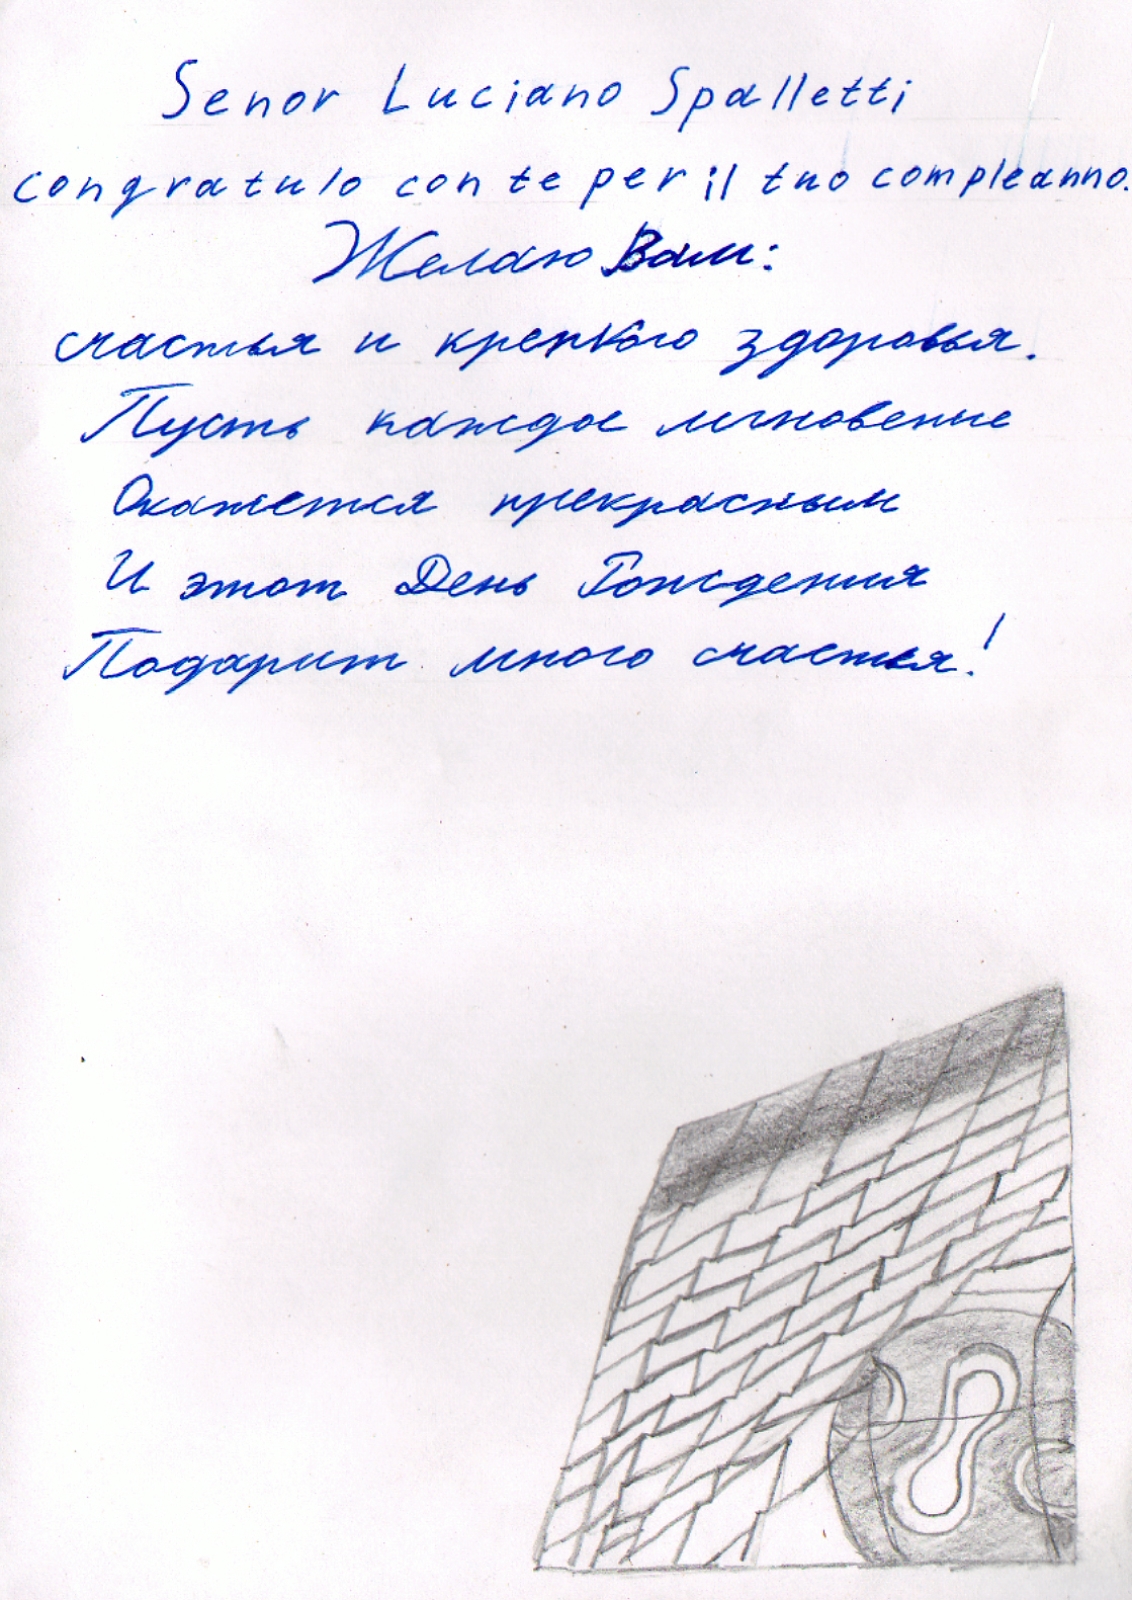 Senor Luciano Spalletti
congratulo con te per il tuo compleanno.
Желаю Вам:
счастья и крепкого здоровья.
Пусть каждое мгновение
Окажется прекрасным
И этот День Рождения
Подарит много счастья!